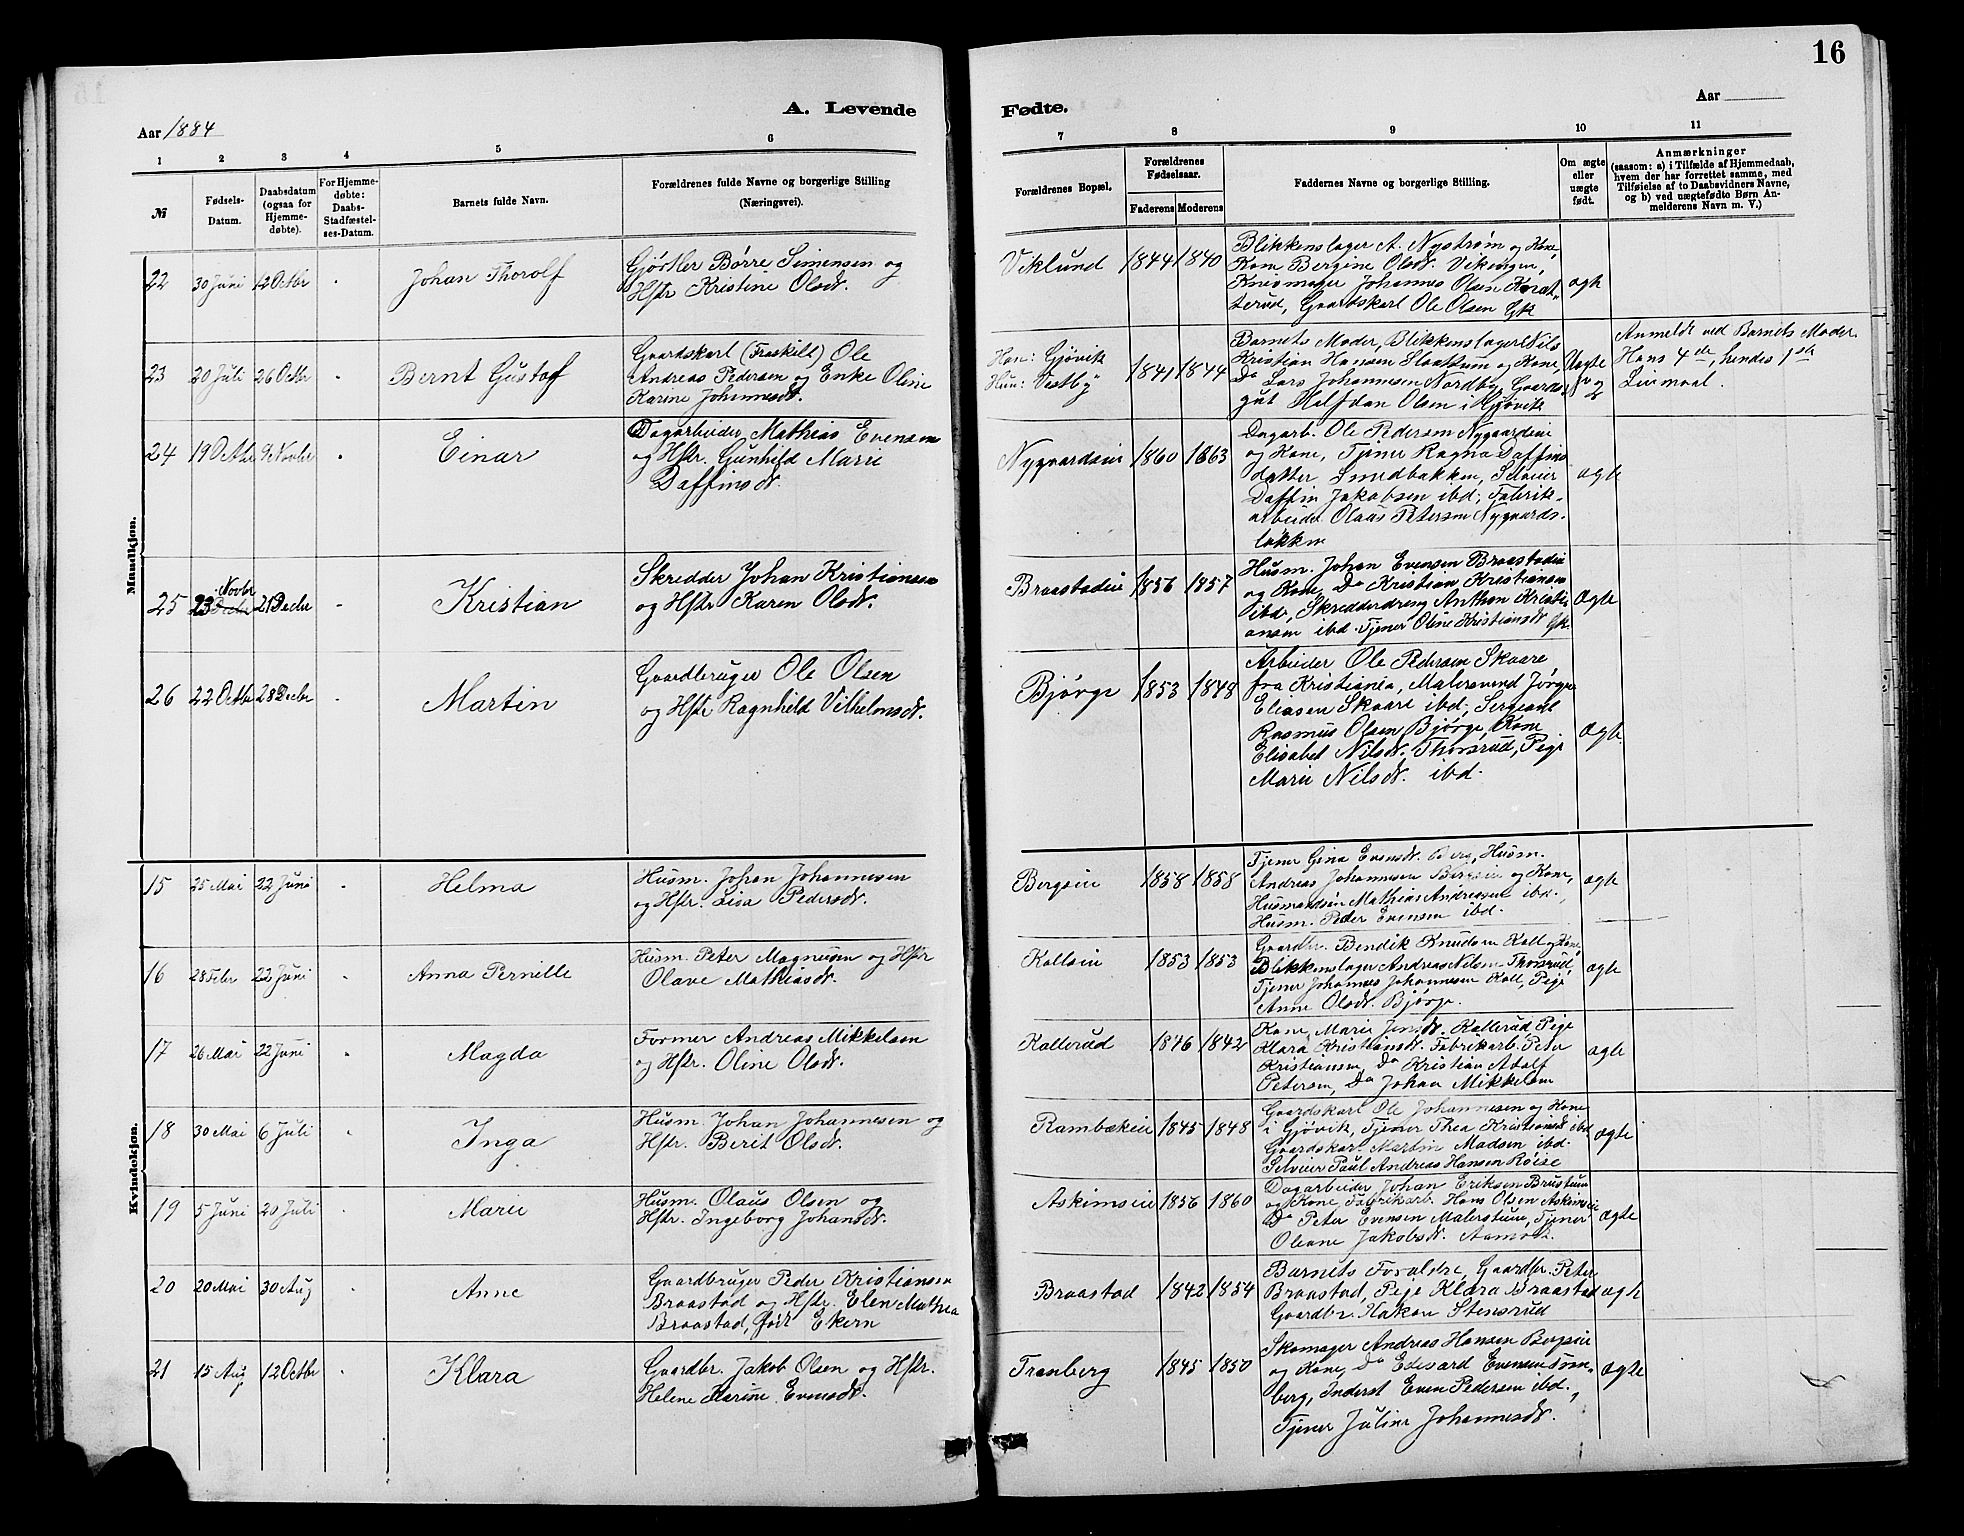 16
A. Levende
Fødte.
Aar 1884
Aar
1
2
3
4
5
6
7
8
9
10
11
№
Fødsels-
Datum.
Daabsdatum
(ogsaa for
Hjemme-
døbte).
For Hjemme-
døbte:
Daabs-
Stadfæstel-
ses-Datum.
Barnets fulde Navn.
Forældrenes fulde Navne og borgerlige Stilling
(Næringsvei).
Forældrenes Bopæl.
Forældrenes
Fødselsaar.
Faderens
Moderens
Faddernes Navne og borgerlige Stilling.
Om ægte
eller
uægte
født.
Anmærkninger
(saasom: a) i Tilfælde af Hjemmedaab,
hvem der har forrettet samme, med
Tilføielse af to Daabsvidners Navne,
og b) ved uægtefødte Børn An-
melderens Navn m. V.)
Mandkjøn.
22 30 Juni 12 Octbr Johan Thorolf
Gjørtler Børre Simensen og
Hstr Kristine Olsdt.
Viklund 1844 1840
Blikkenslager A. Nystrøm og Kone,
Kone Bergine Olsdt. Vikengen,
Knivmager Johannes Olsen Korat-
terud, Gaardskarl Ole Olsen Gk
ægte
23 20 Juli 26 Octbr Bernt Gustaf
Gaardskarl (Fraskilt) Ole
Andreas Pedersen og Enke Oline
Karine Johannesdt.
Han: Gjøvik
Hun: Vestby
1841 1844
Barnets Moder, Blikkenslager Nils
Kristian Hansen Slaattum og Kone,
Do Lars Johannesen Nordby, Gaards-
gut Halfdan Olsen i Gjøvik
Uægte
Anmeldt ved Barnets Moder.
Hans 4de, hendes 1ste
Leiermaal.
24 19 Octbr 9 Novbr Einar
Dagarbeider Mathias Evensen
og Hstr. Gunhild Marie
Daffinsdt.
Nygaardseie 1860 1863
Dagarb. Ole Pedersen Nygaardseie
og Kone, Tjener Ragna Daffins
datter Smedbakken, Selveier
Daffin Jakobsen ibd; Fabrik-
arbeider Olaus Petersen Nygaards-
løkken
ægte
25 23 Novbr Decbr 21 Decbr Kristian
Skredder Johan Kristiansen
og Hstr Karen Olsdt.
Braastadeie 1856 1857
Husm. Johan Evensen Braastadeie
og Kone, Do Kristian Kristiansen
ibd, Skredderdreng Anthon Kristi-
ansen ibd. Tjener Oline Kristiansdt Gk.
Ægte
26 22 Octbr 28 Decbr Martin
Gaardbruger Ole Olsen
og Hstr Ragnhild Vilhelmsdt.
Bjørge 1853 1848
Arbeider Ole Pedersen Skaare
fra Kristiania, Malersvend Jørgen
Eliasen Skaare ibd; Sergeant
Rasmus Olsen Bjørge, Kone
Elisabet Nilsdt. Thorsrud, Pige
Marie Nilsdt. ibd.
Ægte
Kvindekjøn.
15 25 Mai 22 Juni Helma
Husm. Johan Johannesen
og Hstr. Lisa Pedersdt.
Bergseie 1858 1858
Tjener Gina Evensdt. Berg, Husm.
Andreas Johannesen Bergseie og Kone,
Husmandsøn Mathias Andreassen ibd.,
Husm. Peder Evensen ibd.
ægte
16 28 Febr 22 Juni Anna Pernille
Husm. Peter Magnusen og Hstr
Olave Mathiasdt.
Kallseie 1853 1853
Gaardbr. Bendik Knudsen Kall og Kone
Blikkenslager Andreas Nilsen Thorsrud,
Tjener Johannes Johannesen Kall, Pige
Anne Olsdt. Bjørge.
ægte
17 26 Mai 22 Juni Magda
Former Andreas Mikkelsen
og Hstr. Oline Olsdt.
Kallerud 1846 1842
Kone Marie Jensdt. Kallerud Pige
Klara Kristiansdt. Fabrikarb. Peter
Kristiansen, Do Kristian Adolf
Petersen, Do Johan Mikkelsen
ægte
18 30 Mai 6 Juli Inga
Husm. Johan Johannesen og
Hstr. Berit Olsdt.
Rambækeie 1845 1848
Gaardskarl Ole Johannesen og Kone
i Gjøvik, Tjener Thea Kristiansdt ibd
Gaardskarl Martin Madsen ibd.
Selveier Paul Andreas Hansen Røise
ægte
19 5 Juni 20 Juli Marie
Husm. Olaus Olsen og
Hstr. Ingeborg Johansdt.
Askimseie 1856 1860
Dagarbeider Johan Eriksen Brustuen
og Kone, Fabrikarb. Hans Olsen Askimseie
Do Peter Evensen Malerstuen, Tjener
Oleane Jakobsdt. Aamodt.
Ægte
20 20 Mai 30 Aug Anne
Gaardbruger Peder Kristiansen
Braastad og Hstr. Elen Mathea
Braastad, født Ekern
Braastad 1842 1854
Barnets Forældre, Gaardbr. Peter
Braastad, Pige Klara Braastad
Gaardbr. Hakon Stensrud
ægte
21 15 Aug 12 Octbr Klara
Gaardbr. Jakob Olsen og Hstr.
Helene Karine Evensdt.
Tranberg 1845 1850
Skomager Andreas Hansen Bergseie
og Kone, Do Edevard Evensen Tran-
berg, Inderst Even Pedersen ibd.,
Tjener Juline Johannesdt.
Ægte